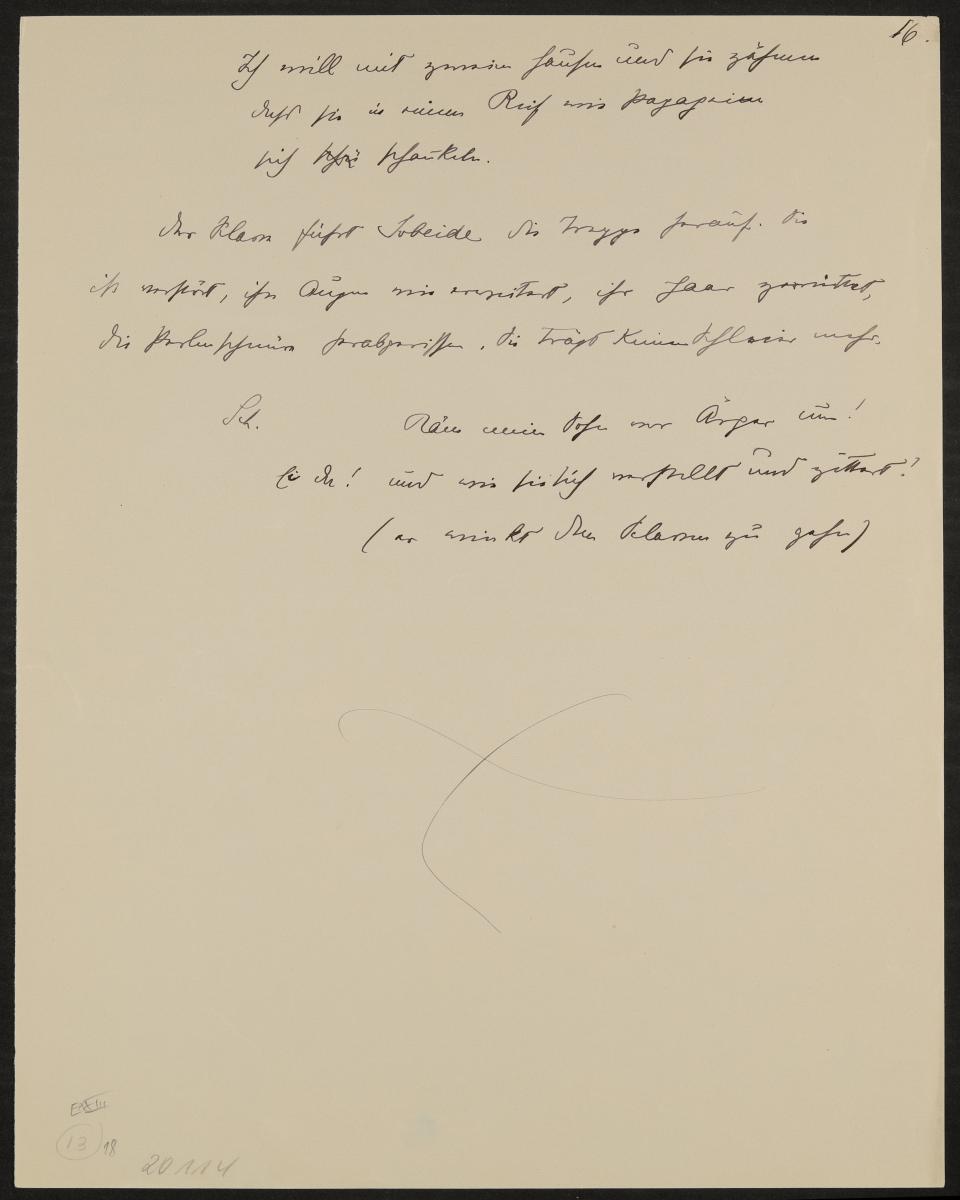 16.
Ich will mit zweien hausen und sie zähmen
dass sie in einem Reif wie Papageien
sich schaukeln.
Der Sclave führt Sobeide die Treppe herauf. Sie
ist verstört, ihre Augen wie erweitert, ihr Haar zerrüttet,
die Perlenschnüre herabgerissen. Sie trägt keinen Schleier mehr.
Sch.
mein Sohn vor Ärger um!
Ei du! und wie sie sich verstellt und zittert!
(er winkt dem Sclaven zu gehn)
13
18
20114